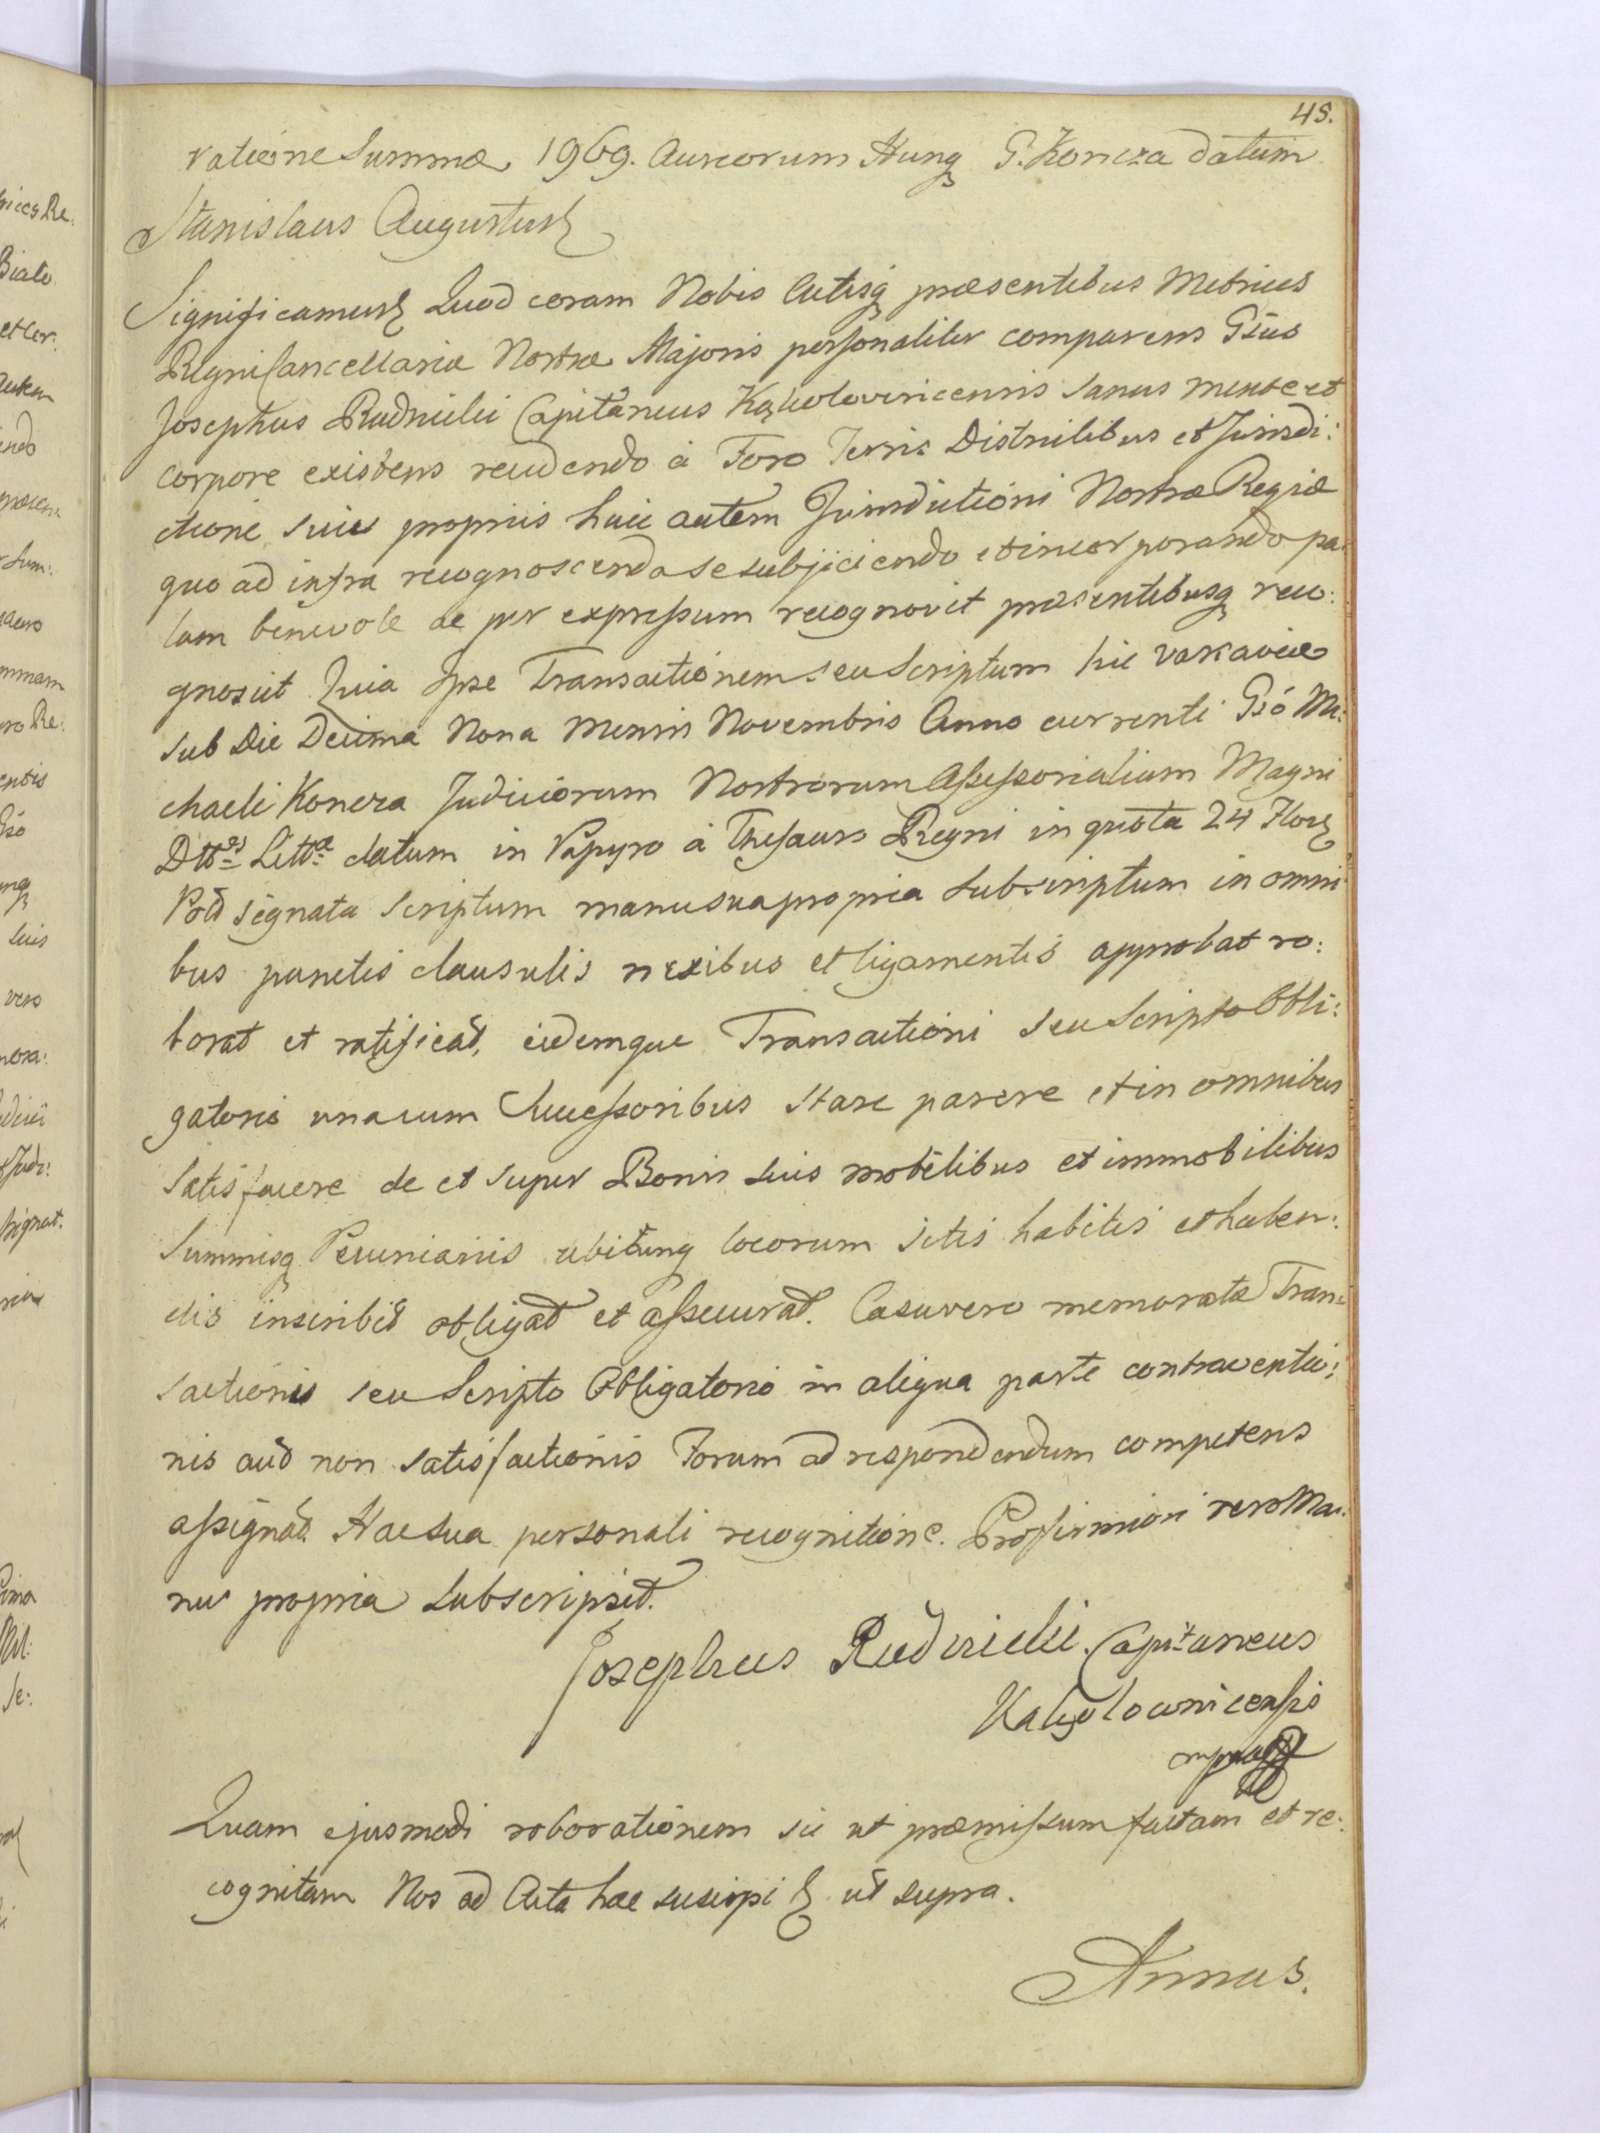 45.
ratione Summæ 1969. Aureorum Hung G. Koncza datum
Stanislaus Augustus
Significamus Quod coram Nobis Actisq præsentibus Metrices
Regni Cancellariæ Nostræ Majoris personaliter comparens Gsus
Josephus Rudnicki Capitaneus Kąkolovnicensis Sanus mente et
corpore existens recedendo à Foro Terris Districtibus et Jurisdi:
ctione suis propriis huic autem Jurisdictioni Nostræ Regiæ
quo ad infra recognoscenda se subjiciendo et incorporando pa:
lam benevole ac per expressum recognovit præsentibusq reco:
gnoscit Quia Ipse Transactionem seu Scriptum hic Varsaviæ
sub Die Decima Nona Mensis Novembris Anno currenti Gsó Mi:
chaeli Koncza Judiciorum Nostrorum Assessorialium Magni
Dttus Littæ datum in Papyro à Thesauro Regni in quota 24 Flor
Pol signata scriptum manu sua propria subscriptum in omni
bus punctis clausulis nexibus et ligamentis approbat ro:
borat et ratificat, eidemque Transactioni seu Scripto Obli:
gatorio una cum Successoribus stare parere et in omnibus
satisfacere de et super Bonis suis mobilibus et immobilibus
Summisq Pecuniariis ubicunq locorum sitis habitis et haben:
dis inscribit obligat et assecurat. Casu vero memorata Tran:
sactionis seu Scripto Obligatorio in aliqua parte contraventio:
nis aut non satisfactionis Forum ad respondendum competens
assignat. Hac sua personali recognitione. Pro firmiori vero Ma:
nu propria subscripsit.
Josephus Rudnicki Capitaneus
Kąkolownicensis
mppa
Quam ejusmodi roborationem sic ut præmissum factam et re:
cognitam Nos ad Acta hæc suscipi ut supra.
Annus.